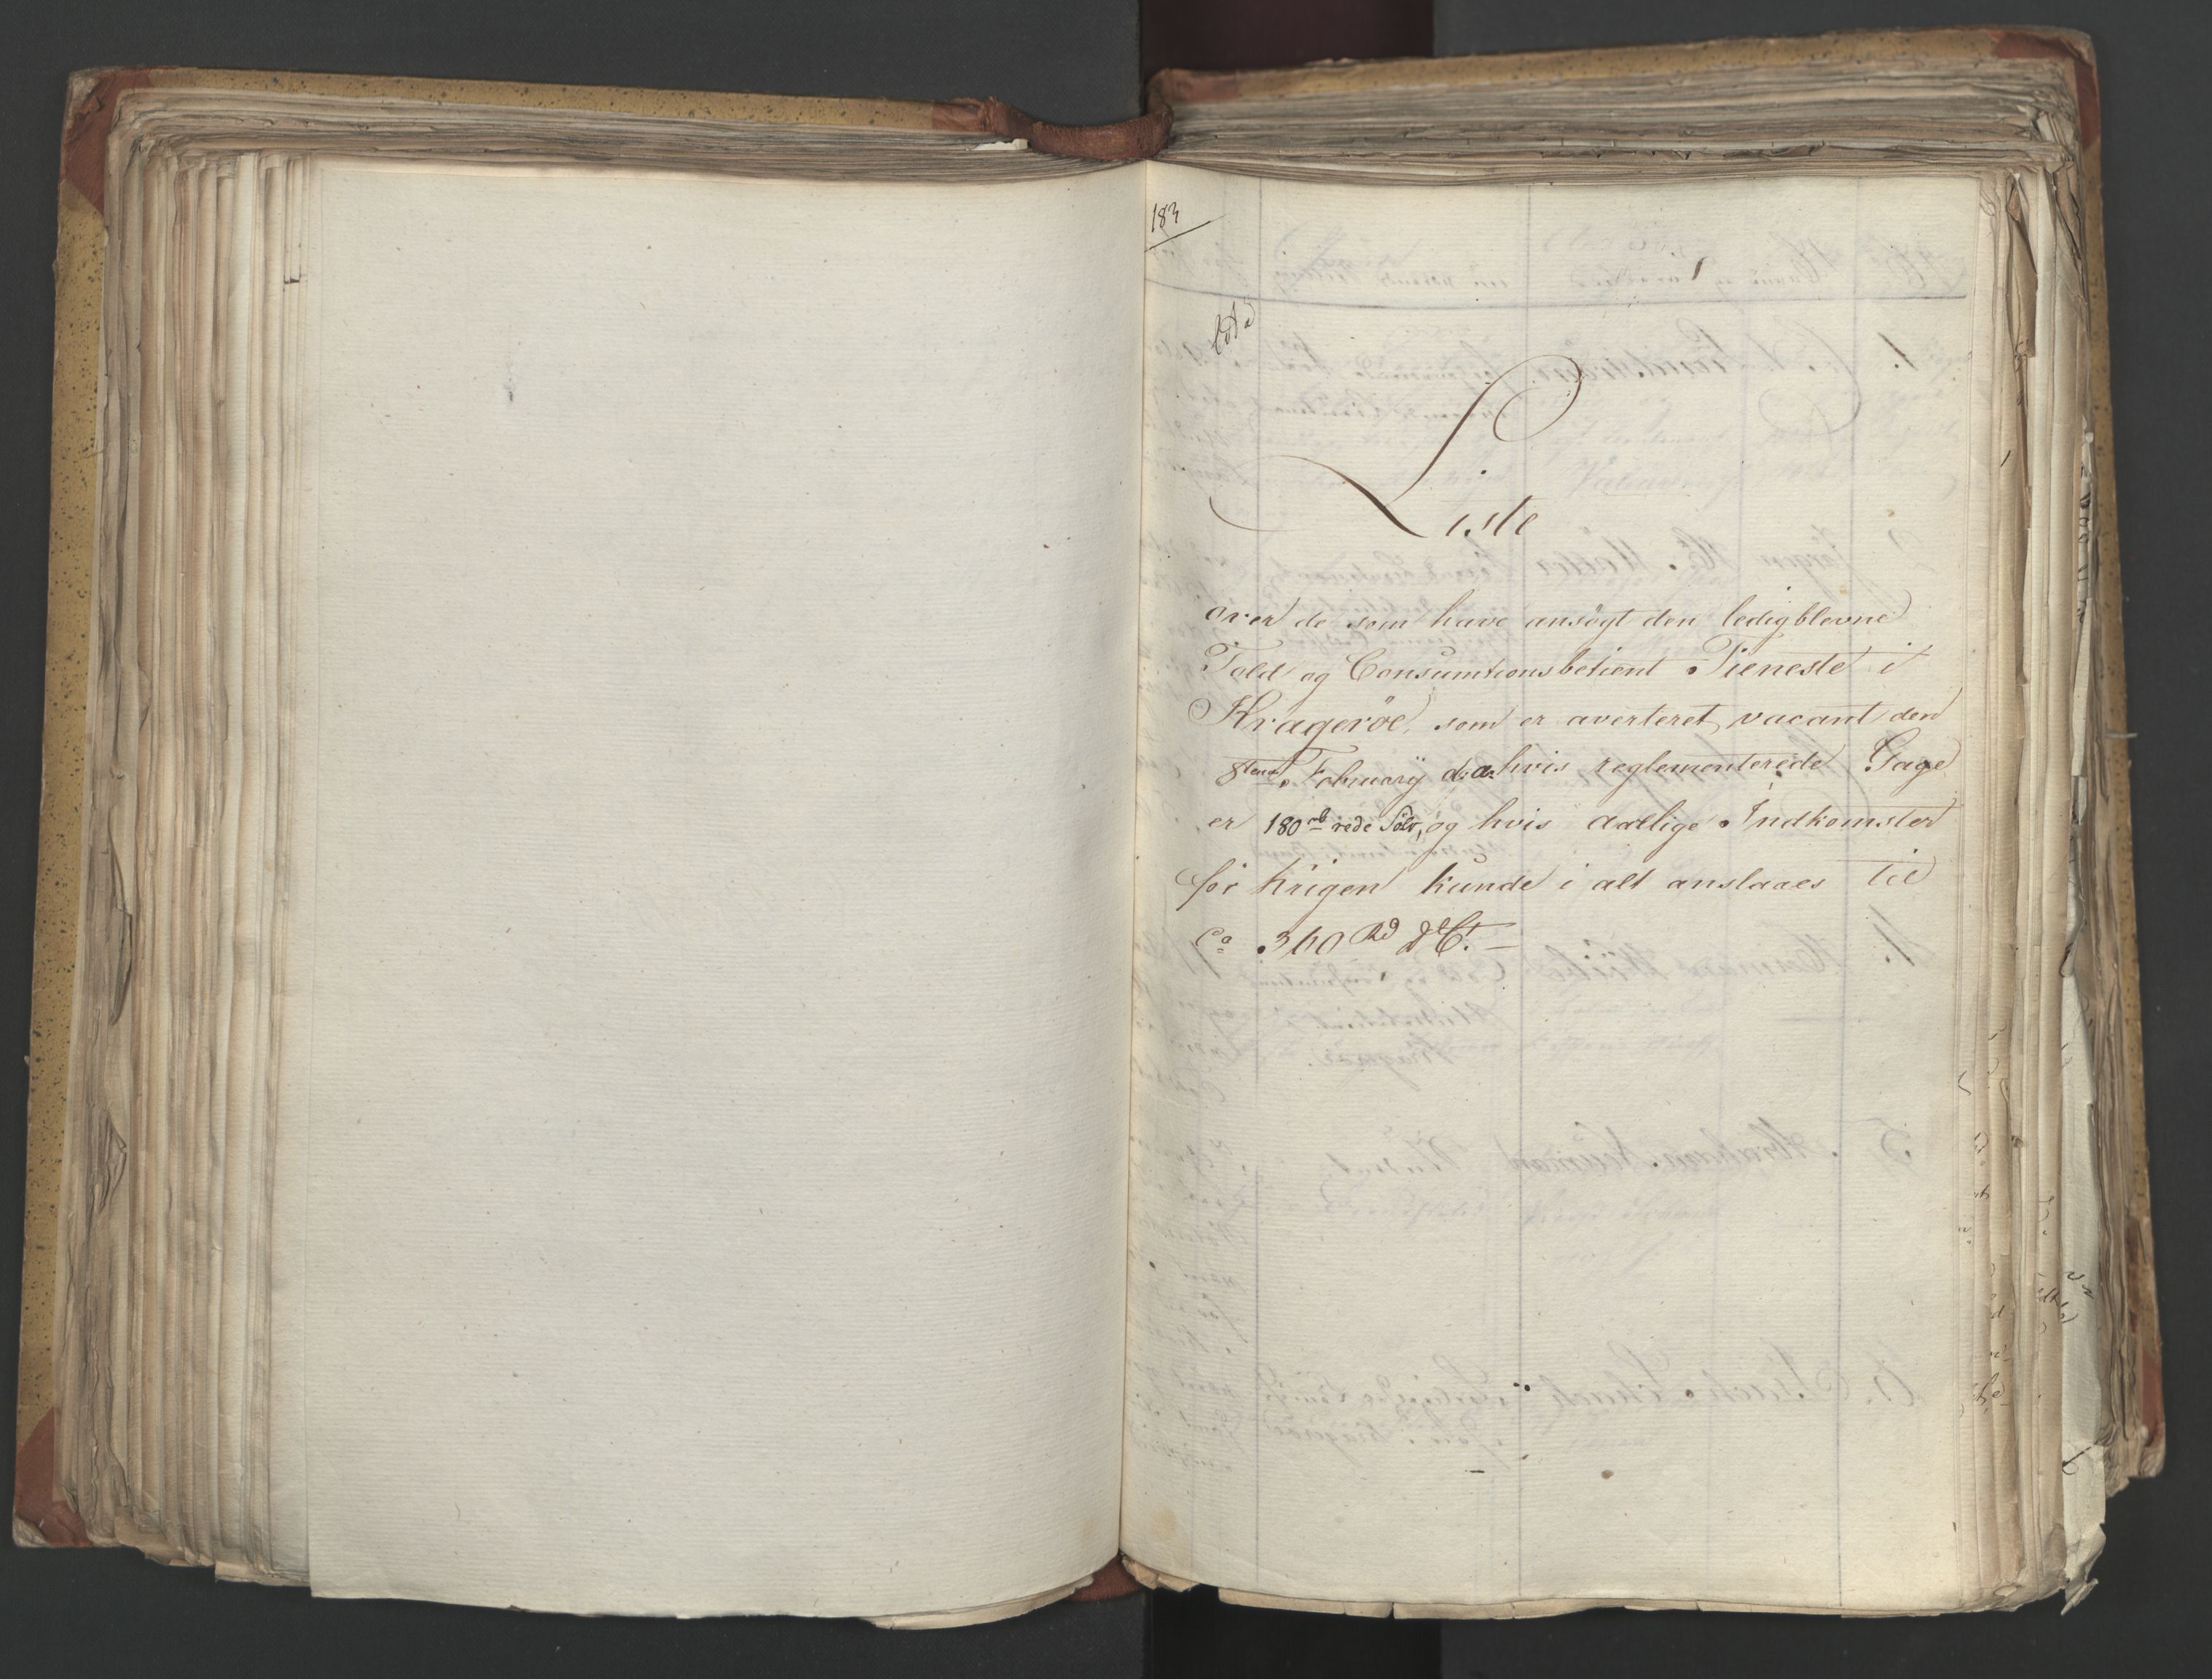 183
Liste
over de som have ansögt den ledigblevne
Told og Consumtionsbetient Tieneste i
Krageröe, som er averteret vacant den
8ten Februarÿ d: a: hvis reglementerede Gage
er 180 rd rede Sölv, og hvis aarlige Indkomster
för krigen kunde i alt anslaaes til
Ca 360 Rd